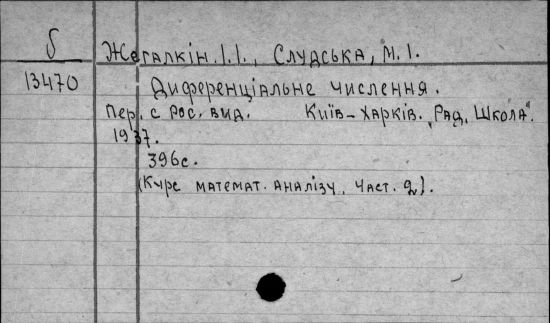 Б
Жегалкін І.І., Слудська, М.І.
13470
Диференціальне числення.
Пер. с рос. вид. Київ-Харків. „Рад. Школа".
1937.
396с.
(Курс математ. аналізу. Част. 2).